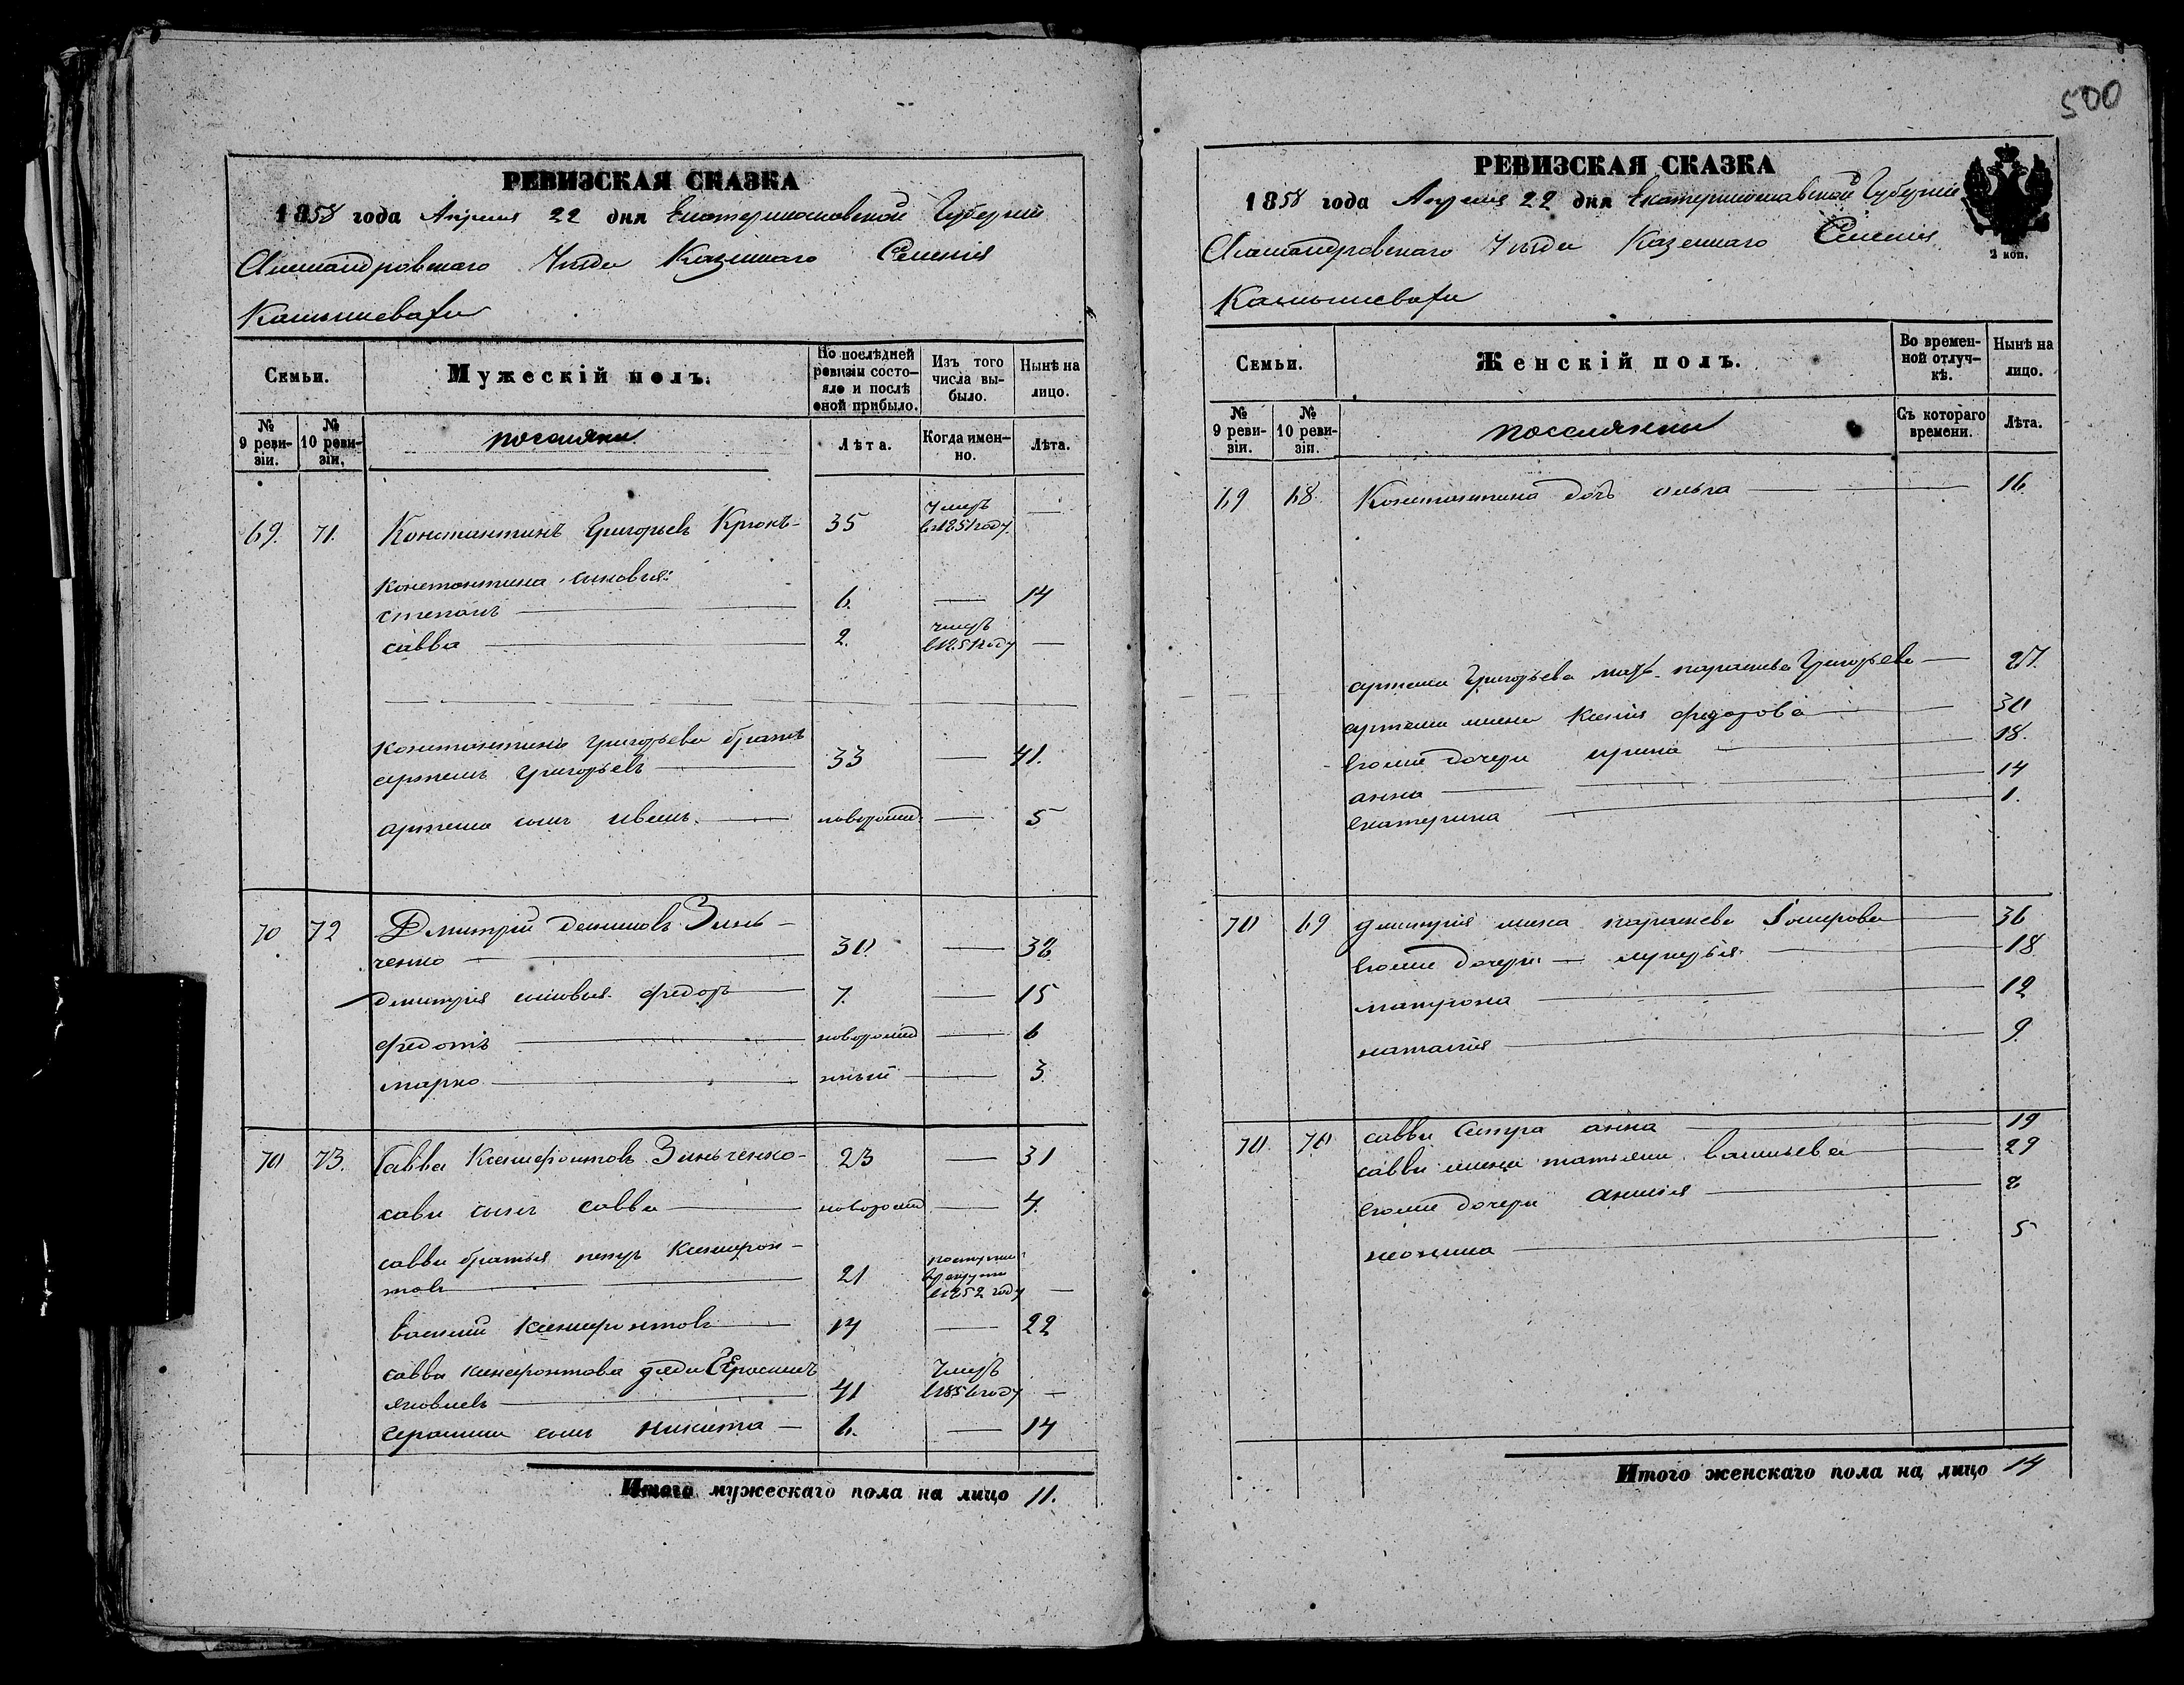 500
РЕВИЗСКАЯ СКАЗКА
1858 года Апреля 22 дня Екатеринославской Губерніи
Александровскаго Уезда Казеннаго Селенія
Камышевахи
Семьи.
Мужескій полъ.
По послѣдней ревизіи состояло и послѣ оной прибыло.
Изъ того числа выбыло.
Нынѣ на лицо.
№ 9 ревизіи.
№ 10 ревизіи.
поселяне
Лѣта.
Когда именно.
Лѣта.
69. 71. Константинъ Григорьевъ Крюкъ- 35 умеръ в 1851 году —
Константина сыновья:
степанъ — 6. — 14
савва — 2. умеръ в 1851 году —
константина григорьева братъ
артемъ григорьевъ — 33 — 41.
артема сынъ иванъ — новорожд — 5
70 72 Дмитрій Зинь-
ченко — 30. — 38
дмитрія сыновья федоръ — 7. — 15
федотъ — новорожд — 6
марко — нный — 3
70 73. Савва Ксенофонтовъ Зиньченко- 23 — 31
савы сынъ савва — новорожд — 4.
саввы братья петръ Ксенофон-
товъ — 21 поступил в рекруты в 1852 году —
василій Ксенофонтовъ — 14 — 22
саввы ксенофонтова дядя Герасимъ
яковлевъ — 41 умеръ в 1856 году —
герасима сынъ никита — 6. — 14
Итого мужескаго пола на лицо 11.
РЕВИЗСКАЯ СКАЗКА
2 коп.
1858 года Апреля 22 дня Екатеринославской Губерніи
Александровскаго Уезда Казеннаго Селенія
Камышевахи
Семьи.
Женскій полъ.
Во временной отлучкѣ.
Нынѣ на лицо.
№ 9 ревизіи.
№ 10 ревизіи.
поселянки
Съ котораго времени.
Лѣта.
69 68. Константина дочь ольга — 16
артема Григорьева парасковья Григорьева — 27.
артема жена Ксенія федорова — 30
егоже дочери ирина — 18.
анна — 14
екатерина — 1.
70 69 дмитрія жена — 36
егоже дочери — лукерья — 18
матрона — 12
наталія — 9.
70. 70 саввы сестра анна — 19
саввы жена татьяна васильева — 29
егоже дочери — 8
— 5
Итого женскаго пола на лицо 14